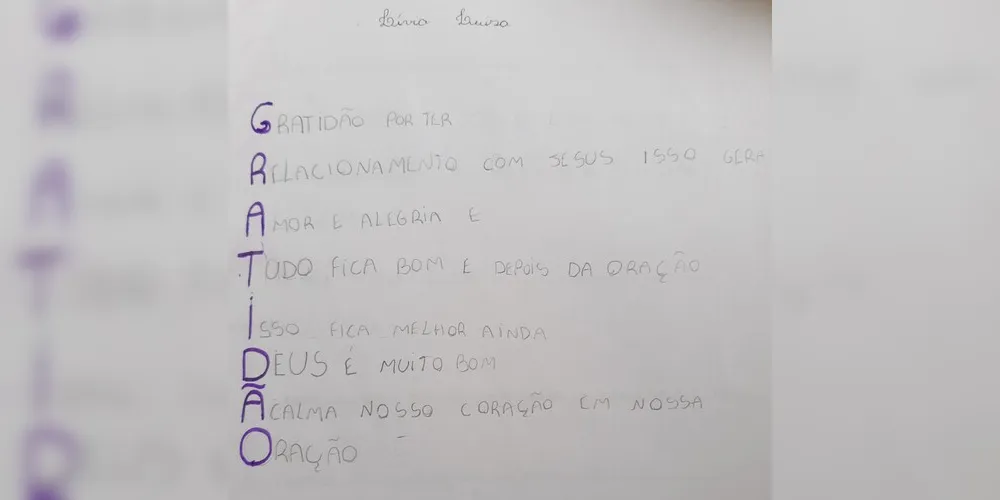 Lívia Luiza
GRATIDÃO POR TER
RELACIONAMENTO COM JESUS ISSO GERA
AMOR E ALEGRIA E
TUDO FICA BOM E DEPOIS DA ORAÇÃO
ISSO FICA MELHOR AINDA
DEUS É MUITO BOM
ÃCALMA NOSSO CORAÇÃO EM NOSSA
ORAÇÃO